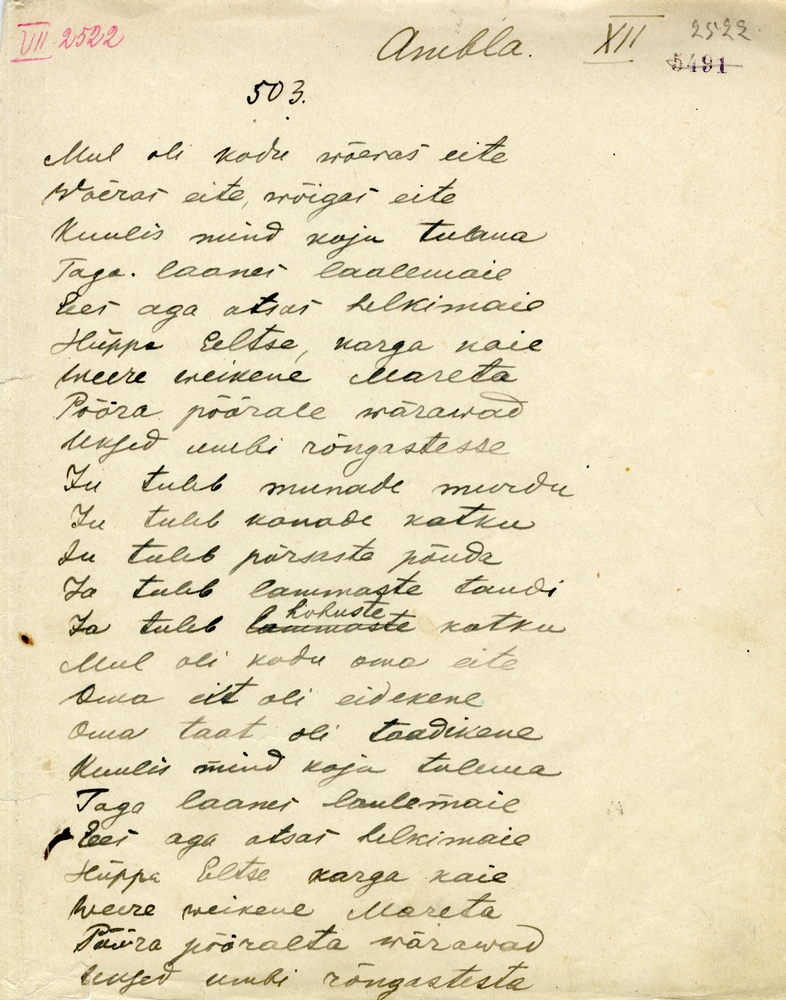 VII 2522
Ambla. XII 2522
5491
503.
Mul oli kodu wõeras eite
Wõeras eite, wõigas eite
Kuulis mind koju tulema
Taga laanes laulemaie
Ees aga otsas helkimaie
Hüppa Eeltse, karga kaie
Weere weikene Mareta
Pööra pöörale wärawad
Uksed umbi rõngastesse
Ju tuleb munade murdu
Ju tuleb kanade katku
Ju tuleb põrsaste põuda
Ja tuleb lammaste taudi
Ja tuleb lammaste hobuste katku
Mul oli kodu oma eite
Oma eit oli eidekene
Oma taat oli taadikene
Kuulis mind koju tulema
Taga laanes laulemaie
Ees aga otsas helkimaie
Hüppa Eltse karga kaie
Weere weikene Mareta
Pööra pööralta wärawad
Uksed umbi rõngastesta